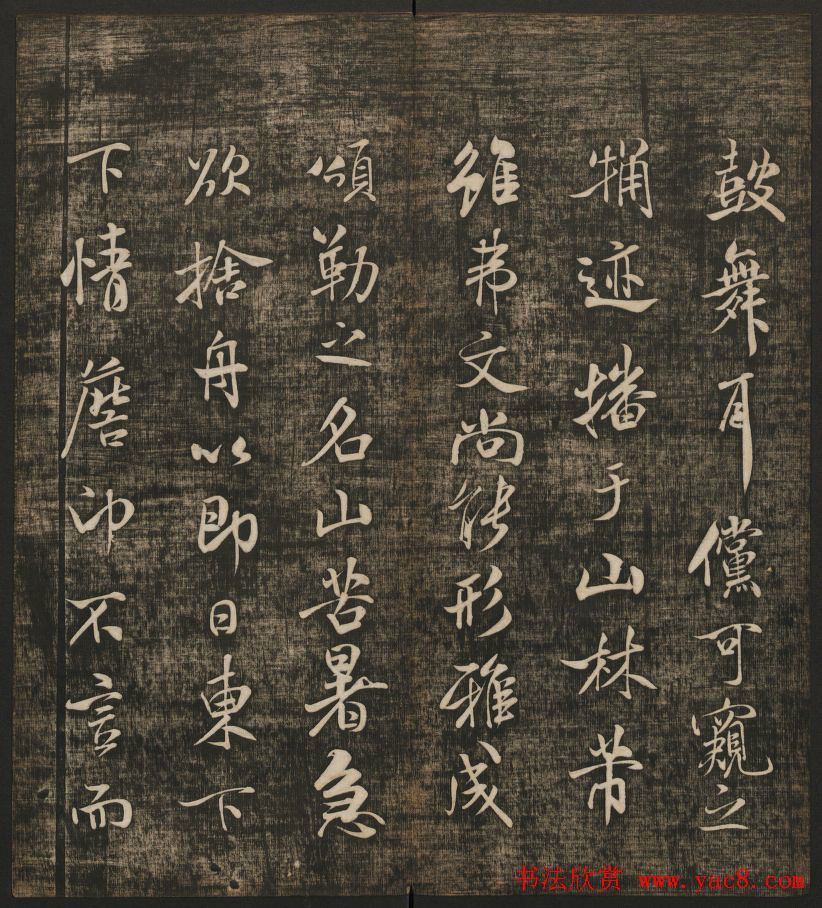 鼓舞耳儻可窺之
迹播于山林芾
雖弗文尚能形雅成
頌勒之名山苦暑急
欲捨舟以即日東下
下情詹卬不言而
书法欣赏 www.yac8.com